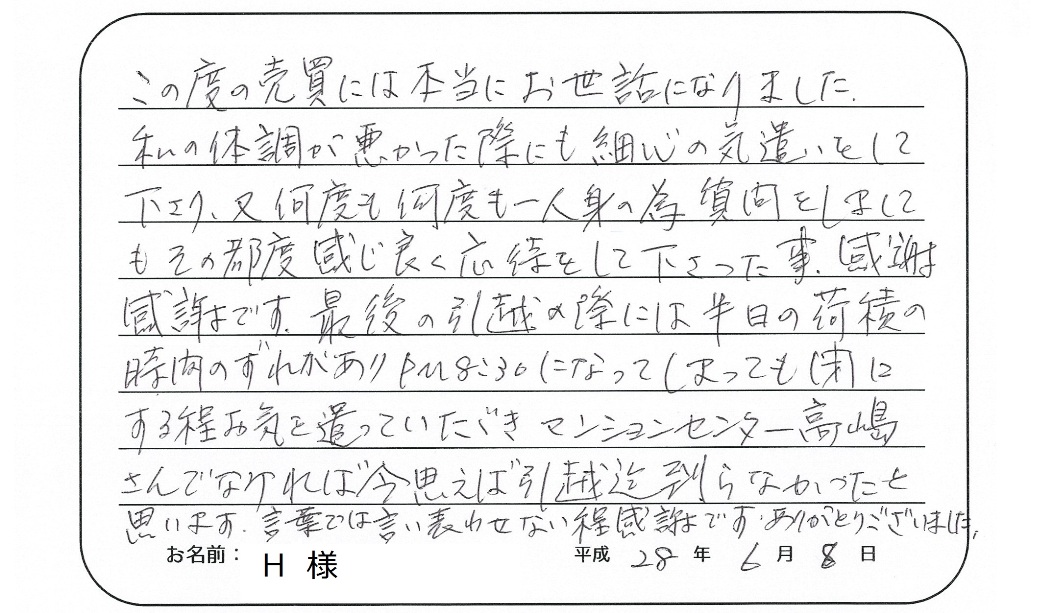 この度の売買には本当にお世話になりました.
私の体調が悪かった際にも細心の気遣いをして
下さり、又何度も何度も一人身の為質問をしまして
もその都度感じ良く応待をして下さった事、感謝
感謝です. 最後の引越の際には半日の荷積の
時間のずれがありPM8:30になってしまっても
する程お気を遣っていただき マンションセンター高嶋
さんでなければ今思えば引越迄到らなかったと
思います. 言葉では言い表わせない程感謝です. ありがとうございました.
お名前： H 様 平成 28 年 6 月 8 日